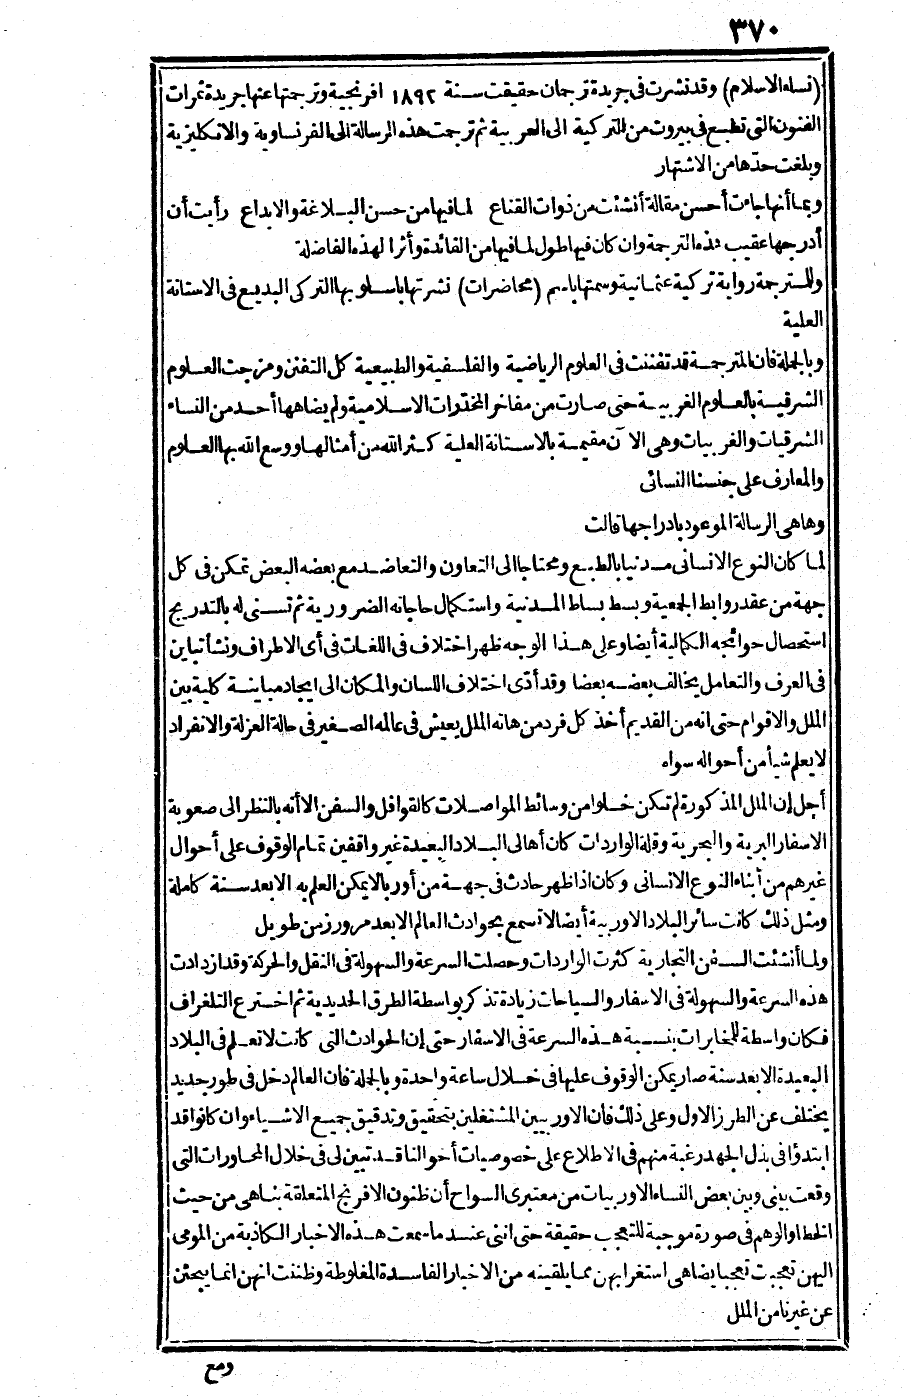 ٣٧٠
(نساء الاسلام) وقد نشرت فى جريدة ترجمان حقيقت سنة ١٨٩٢ افرنجية وترجمتها عنها جريدة ثمرات
الفنون التى تطبع فى بيروت من التركية الى العربية ثم ترجمت هذه الرسالة الى الفرنساوية والانكليزية
وبلغت حدّها من الاشتهار
وبما أنها جاءت أحسن مقالة أنشئت من ذوات القناع لما فيها من حسن البلاغة والابداع رأيت أن
أدرجها عقيب هذه الترجمة وان كان فيها طول لما فيها من الفائدة وأثرا لهذه الفاضلة
وللمترجمة رواية تركية عثمانية وسمتها باسم (محاضرات) نشرتها باسلوبها التركى البديع فى الاستانة
العلية
وبالجملة فان المترجمة قد تفننت فى العلوم الرياضية والفلسفية والطبيعية كل التفنن ومزجت العلوم
الشرقية بالعلوم الغربية حتى صارت من مفاخر المخدرات الاسلامية ولم يضاهها أحد من النساء
الشرقيات والغربيات وهى الآن مقيمة بالاستانة العلية كثر الله من أمثالها ووسع الله بها العلوم
والمعارف على جنسنا النسائى
وهاهى الرسالة الموعود بادراجها قالت
لما كان النوع الانسانى مدنيا بالطبع ومحتاجا الى التعاون والتعاضد مع بعضه البعض تمكن فى كل
جهة من عقد روابط الجمعية وبسط بساط المدنية واستكمال حاجاته الضرورية ثم تسنى له بالتدريج
استحصال حوائجه الكمالية أيضا وعلى هذا الوجه ظهر اختلاف فى اللغات فى أى الاطراف ونشأ تباين
فى العرف والتعامل يخالف بعضه بعضا وقد أدّى اختلاف اللسان والمكان الى ايجاد مباينة كلية بين
الملل والاقوام حتى انه من القديم أخذ كل فرد من هاته الملل يعيش فى عالمه الصغير فى حالة العزلة والانفراد
لا يعلم شيأ من أحوال سواه
أجل إن الملل المذكورة لم تكن خلوا من وسائط المواصلات كالقوافل والسفن الا أنه بالنظر الى صعوبة
الاسفار البرية والبحرية وقلة الواردات كان أهالى البلاد البعيدة غير واقفين تمام الوقوف على أحوال
غيرهم من أبناء النوع الانسانى وكان اذا ظهر حادث فى جهة من أوربا لا يمكن العلم به الا بعد سنة كاملة
ومثل ذلك كانت سائر البلاد الاوربية أيضا لا تسمع بحوادث العالم الا بعد مرور زمن طويل
ولما أنشئت السفن التجارية كثرت الواردات وحصلت السرعة والسهولة فى النقل والحركة وقد ازدادت
هذه السرعة والسهولة فى الاسفار والسياحات زيادة تذكر بواسطة الطرق الحديدية ثم اخترع التلغراف
فكان واسطة للمخابرات بنسبة هذه السرعة فى الاسفار حتى إن الحوادث التى كانت لا تعلم فى البلاد
البعيدة الا بعد سنة صار يمكن الوقوف عليها فى خلال ساعة واحدة وبالجملة فان العالم دخل فى طور جديد
يختلف عن الطرز الاول وعلى ذلك فان الاوربيين المشتغلين بتحقيق وتدقيق جميع الاشياء وان كانوا قد
ابتدؤا فى بذل الجهد رغبة منهم فى الاطلاع على خصوصيات أحوالنا قد تبين لى فى خلال المحاورات التى
وقعت بينى وبين بعض النساء الاوربيات من معتبرى السواح أن ظنون الافرنج المتعلقة بنا هى من حيث
الخطا والوهم فى صورة موجبة للتعجب حقيقة حتى اننى عندما سمعت هذه الاخبار الكاذبة من المومى
اليهن تعجبت تعجبا يضاهى استغرابهن مما يلقينه من الاخبار الفاسدة المغلوطة وظننت انهن انما يبحثن
عن غيرنا من الملل
ومع